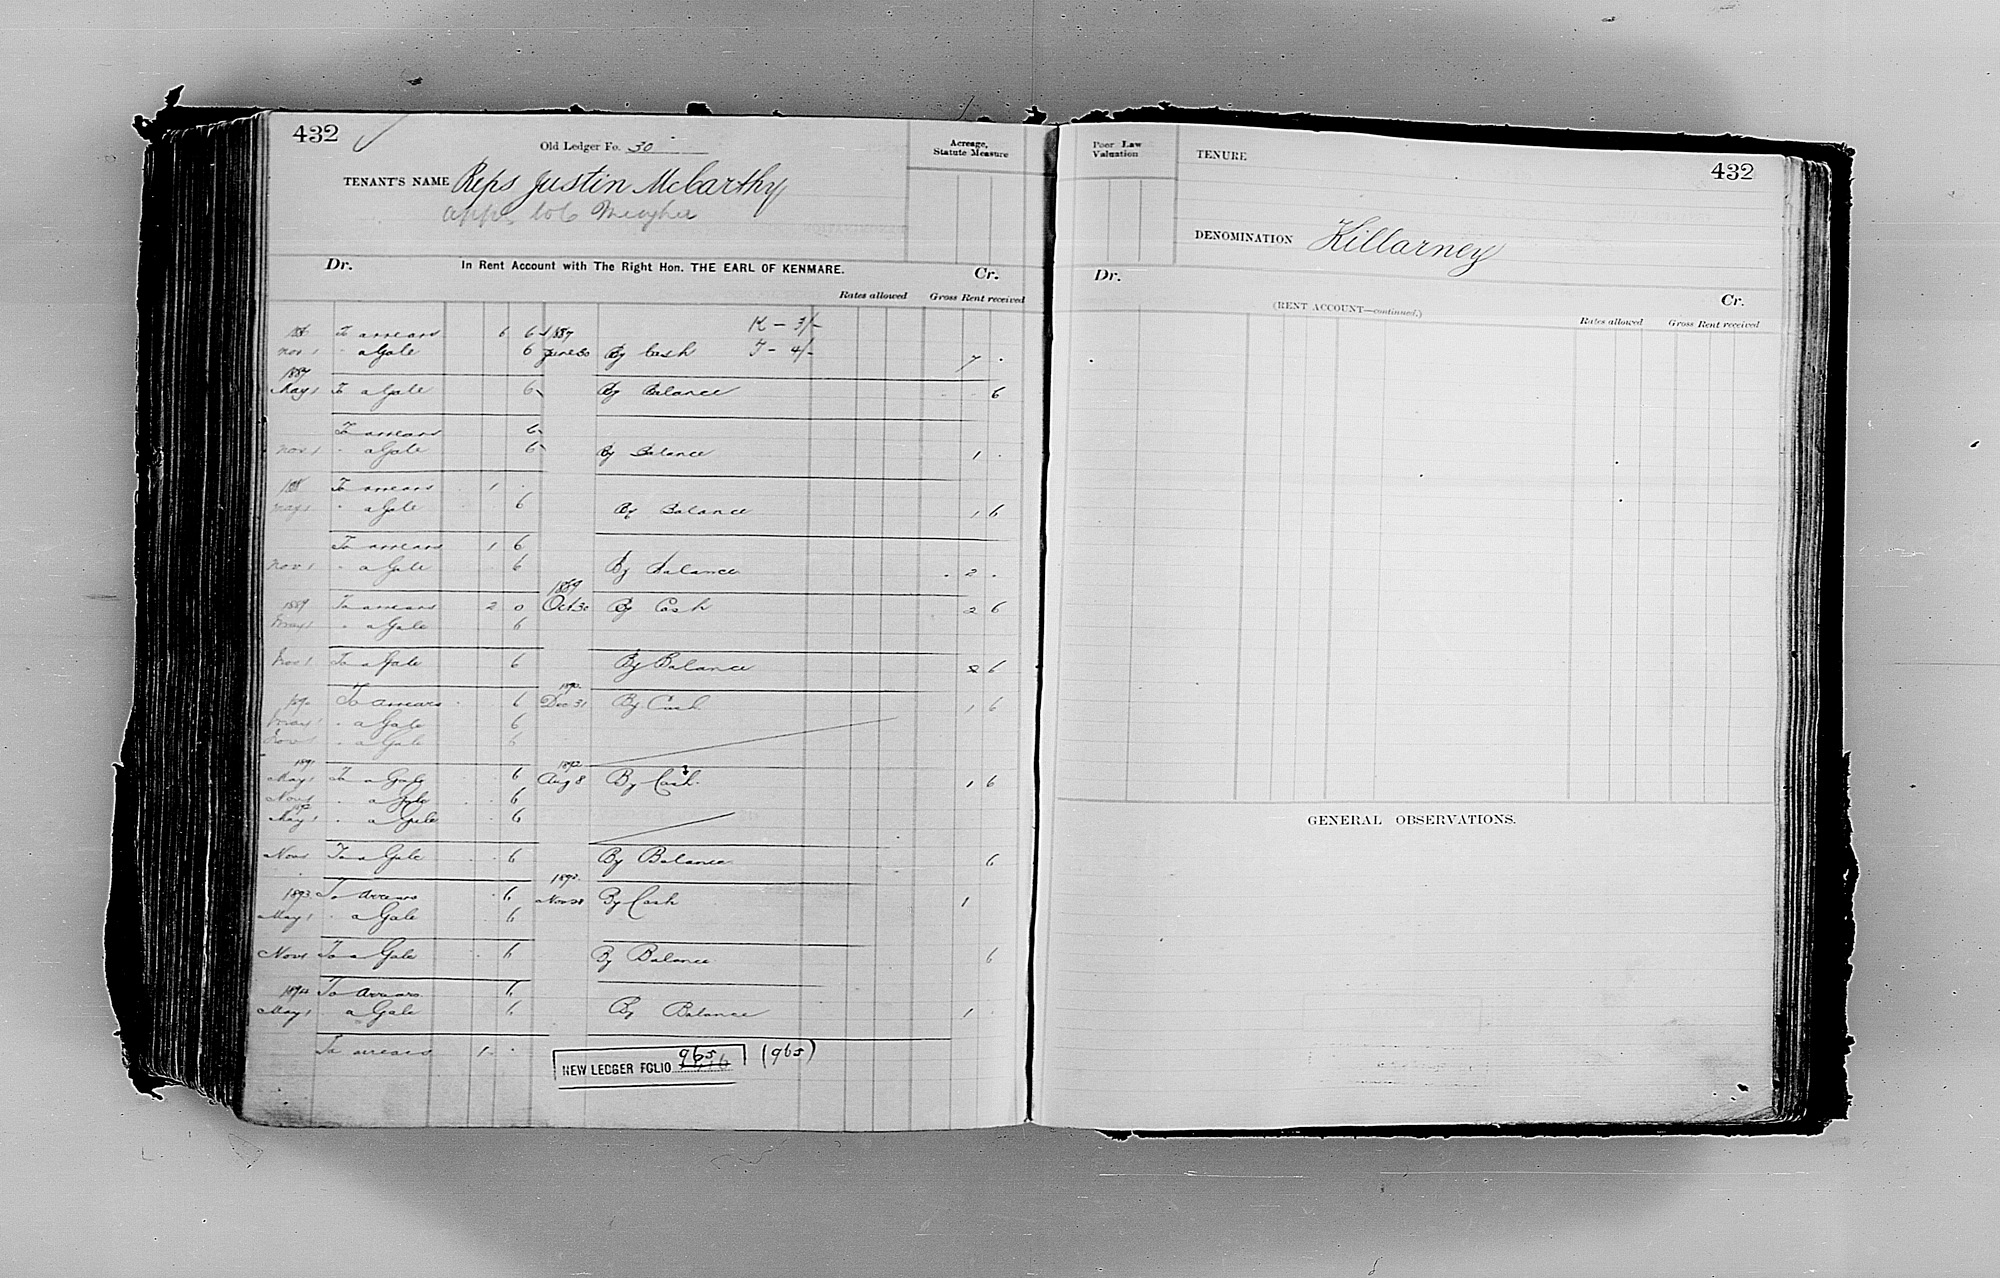 432
Old Ledger Fo. 30
Acreage,
Statute Measure
TENANT'S NAME Reps Justin McCarthy
Meagher
Dr. In Rent Account with The Right Hon. THE EARL OF KENMARE. Cr.
Rates allowed Gross Rent received
To arrears 6 6 1887 K - 3/-
Nov 1 " a Gale 6 June 30 By Cash J - 4/- 7 .
1887
May 1 To a Gale 6 By Balance 6
To arrears 6
Nov 1 " a Gale 6 By Balance 1 .
1888 To arrears 1 .
May 1 " a Gale 6 By Balance 1 6
To arrears 1 6
Nov 1 " a Gale 6 By Balance 2 .
1889
1889 To arrears 2 0 Oct 30 By Cash 2 6
May 1 " a Gale 6
Nov 1 To a Gale 6 By Balance 6
1890
1890 To arrears 6 Dec 31 By Cash 1 6
May 1 " a Gale 6
Nov 1 " a Gale 6
1891 1892
May 1 To a Gale 6 Aug 8 By Cash 1 6
Nov 1 " a Gale 6
1892
May 1 " a Gale 6
Nov 1 To a Gale 6 By Balance 6
1893
1893 To arrears 6 Nov 28 By Cash 1
May 1 " a Gale 6
Nov 1 To a Gale 6 By Balance 6
1894 To arrears 6
May 1 a Gale 6 By Balance 1 .
To arrears 1 .
NEW LEDGER FOLIO 965 (965)
Poor Law
Valuation
TENURE
432
DENOMINATION Killarney
Dr. Cr.
(RENT ACCOUNT—continued.)
Rates allowed Gross Rent received
GENERAL OBSERVATIONS.